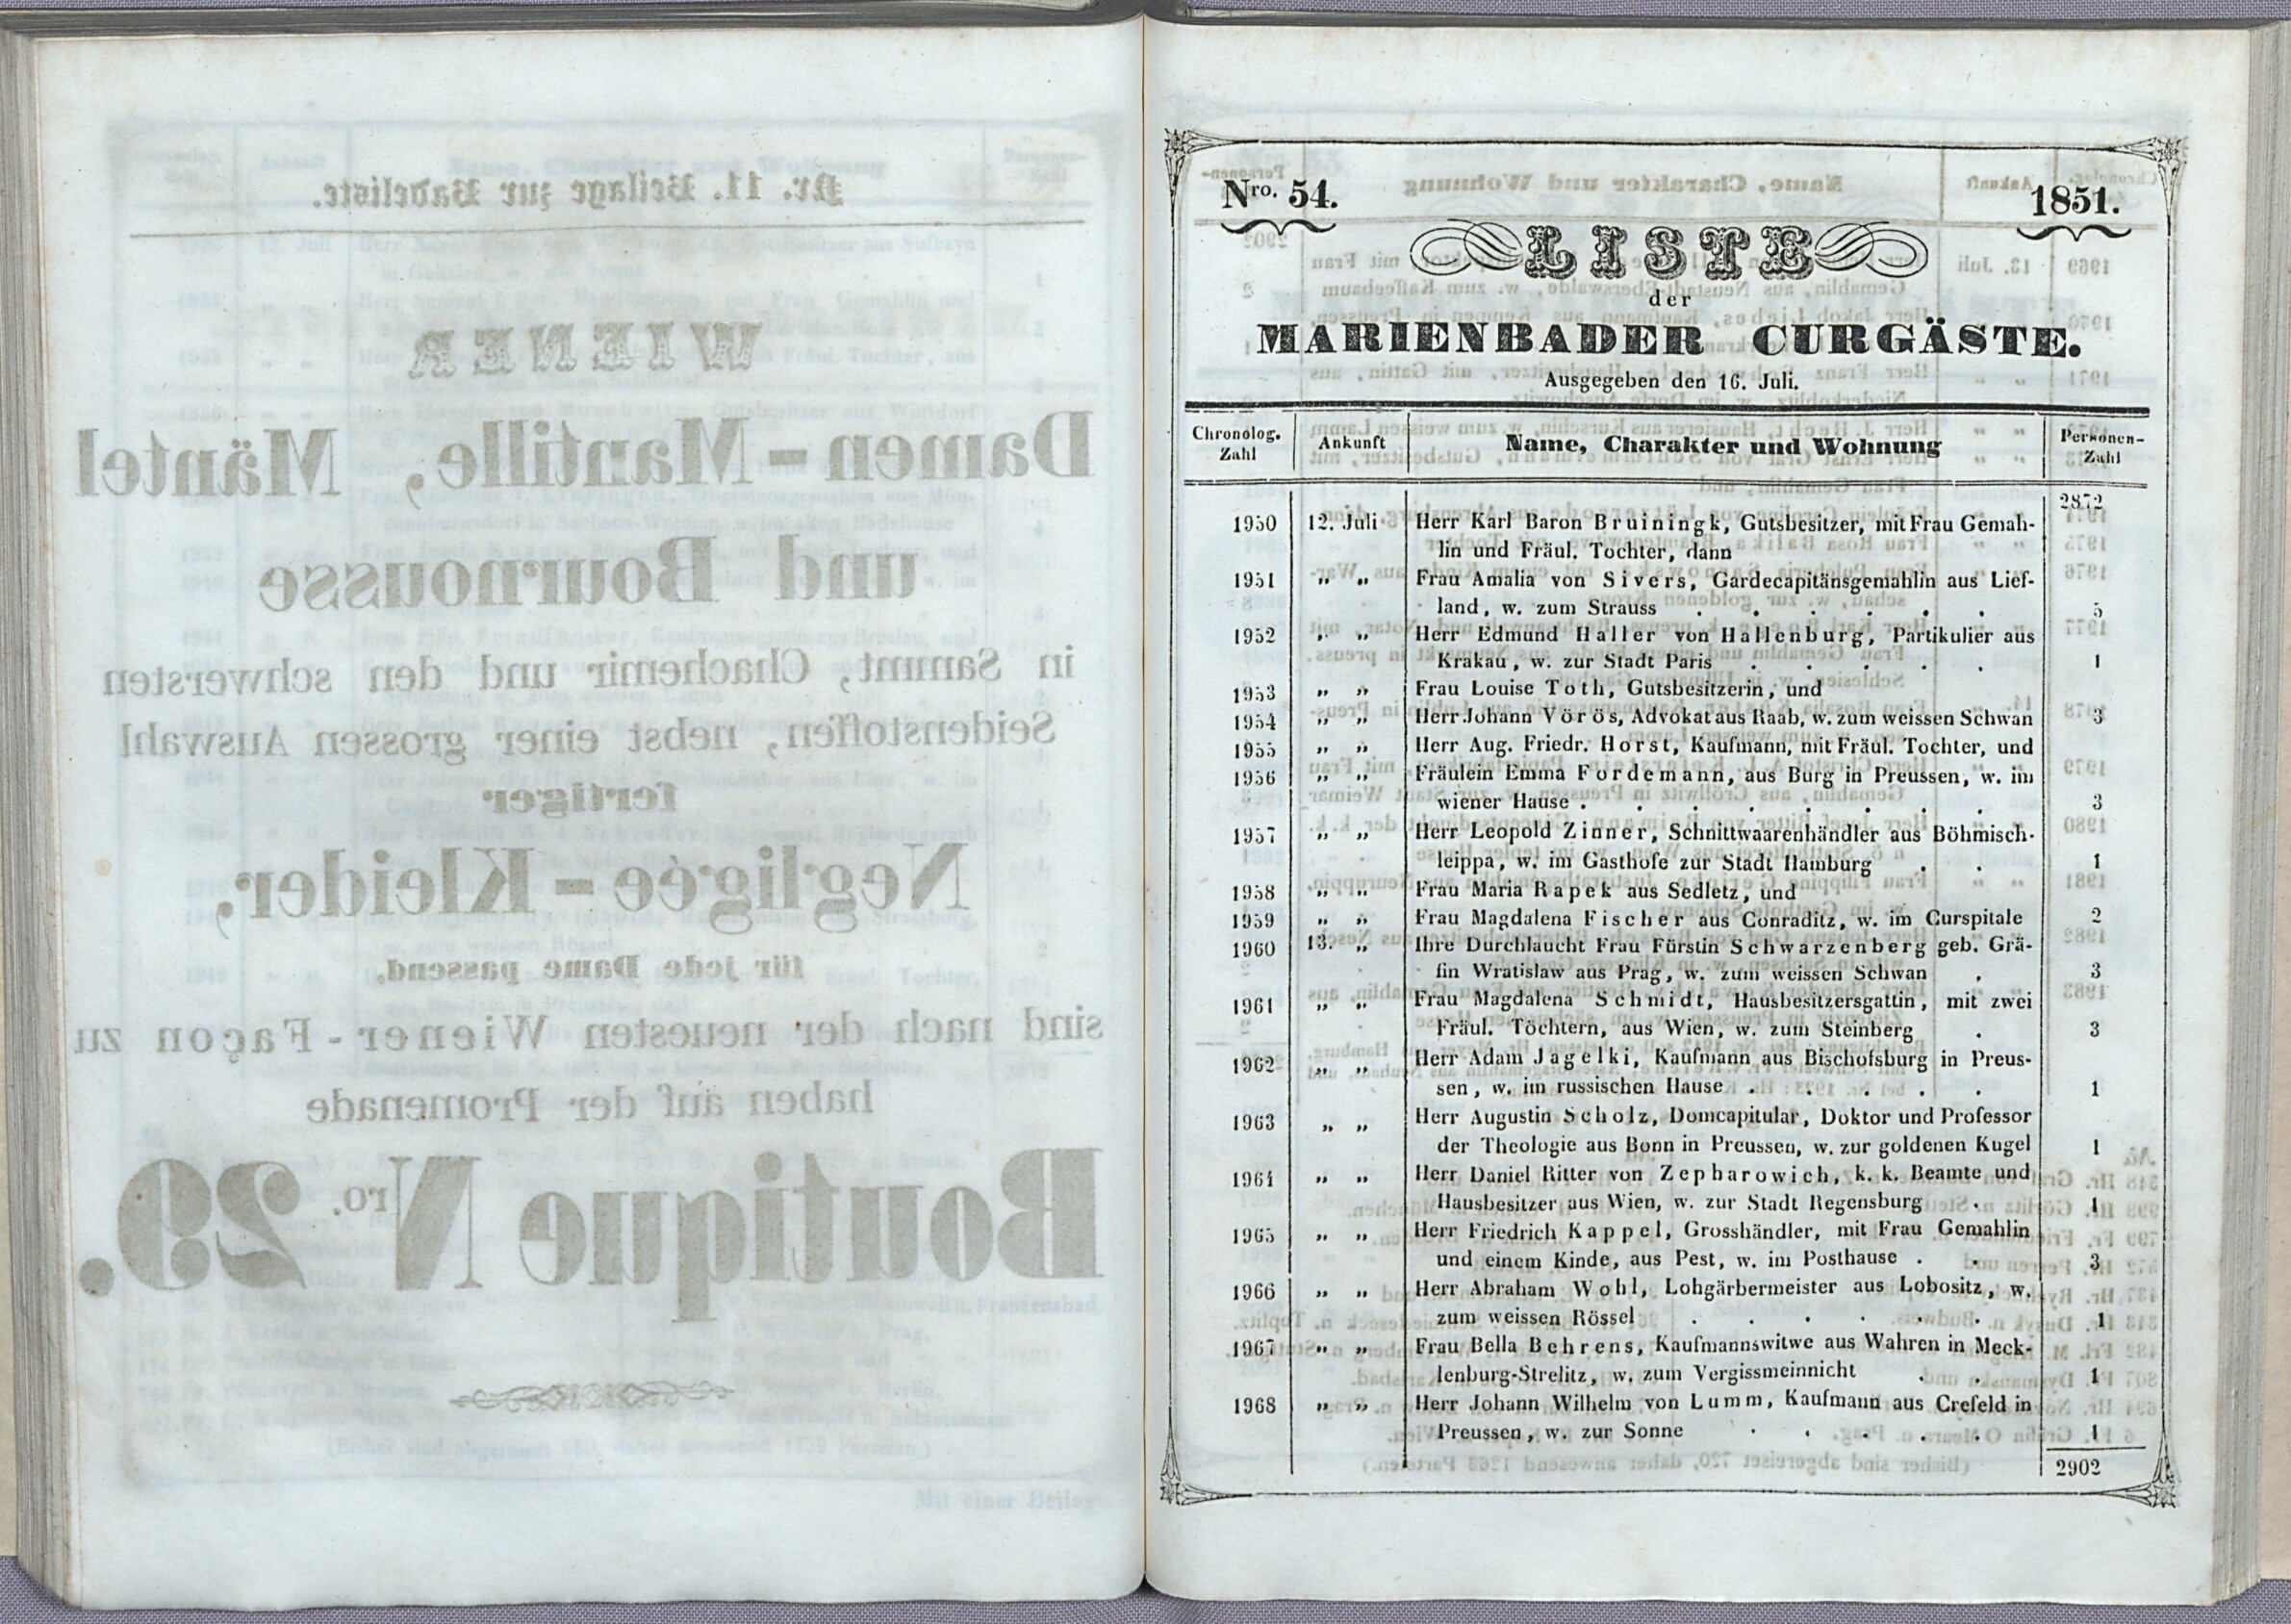 Nr. 11. Beilage zur Badeliste.
WIENER
Damen-Mantille, Mäntel
und Bournousse
in Sammt, Chachemir und den schwersten
Seidenstoffen, nebst einer grossen Auswahl
fertiger
Negligée-Kleider,
für jede Dame passend,
sind nach der neuesten Wiener-Façon zu
haben auf der Promenade
Boutique Nro. 29.
Nro. 54. 1851.
LISTE
der
MARIENBADER CURGÄSTE.
Ausgegeben den 16. Juli.
Chronolog. Zahl | Ankunft | Name, Charakter und Wohnung | Personen-Zahl
2872
1950 12. Juli Herr Karl Baron Bruiningk, Gutsbesitzer, mit Frau Gemah-
lin und Fräul. Tochter, dann
1951 „ „ Frau Amalia von Sivers, Gardecapitänsgemahlin aus Lief-
land, w. zum Strauss . . . . . . 5
1952 „ „ Herr Edmund Haller von Hallenburg, Partikulier aus
Krakau, w. zur Stadt Paris . . . . . 1
1953 „ „ Frau Louise Toth, Gutsbesitzerin, und
1954 „ „ Herr Johann Vörös, Advokat aus Raab, w. zum weissen Schwan 3
1955 „ „ Herr Aug. Friedr. Horst, Kaufmann, mit Fräul. Tochter, und
1956 „ „ Fräulein Emma Fordemann, aus Burg in Preussen, w. im
wiener Hause . . . . . . . . 3
1957 „ „ Herr Leopold Zinner, Schnittwaarenhändler aus Böhmisch-
leippa, w. im Gasthofe zur Stadt Hamburg . . 1
1958 „ „ Frau Maria Rapek aus Sedletz, und
1959 „ „ Frau Magdalena Fischer aus Conraditz, w. im Curspitale 2
1960 13. „ Ihre Durchlaucht Frau Fürstin Schwarzenberg geb. Grä-
fin Wratislaw aus Prag, w. zum weissen Schwan . 3
1961 „ „ Frau Magdalena Schmidt, Hausbesitzersgattin, mit zwei
Fräul. Töchtern, aus Wien, w. zum Steinberg . 3
1962 „ „ Herr Adam Jagelki, Kaufmann aus Bischofsburg in Preus-
sen, w. im russischen Hause . . . . . 1
1963 „ „ Herr Augustin Scholz, Domcapitular, Doktor und Professor
der Theologie aus Bonn in Preussen, w. zur goldenen Kugel 1
1964 „ „ Herr Daniel Ritter von Zepharowich, k. k. Beamte und
Hausbesitzer aus Wien, w. zur Stadt Regensburg . 1
1965 „ „ Herr Friedrich Kappel, Grosshändler, mit Frau Gemahlin
und einem Kinde, aus Pest, w. im Posthause . . 3
1966 „ „ Herr Abraham Wohl, Lohgärbermeister aus Lobositz, w.
zum weissen Rössel . . . . . . 1
1967 „ „ Frau Bella Behrens, Kaufmannswitwe aus Wahren in Meck-
lenburg-Strelitz, w. zum Vergissmeinnicht . . 1
1968 „ „ Herr Johann Wilhelm von Lumm, Kaufmann aus Crefeld in
Preussen, w. zur Sonne . . . . . 1
2902